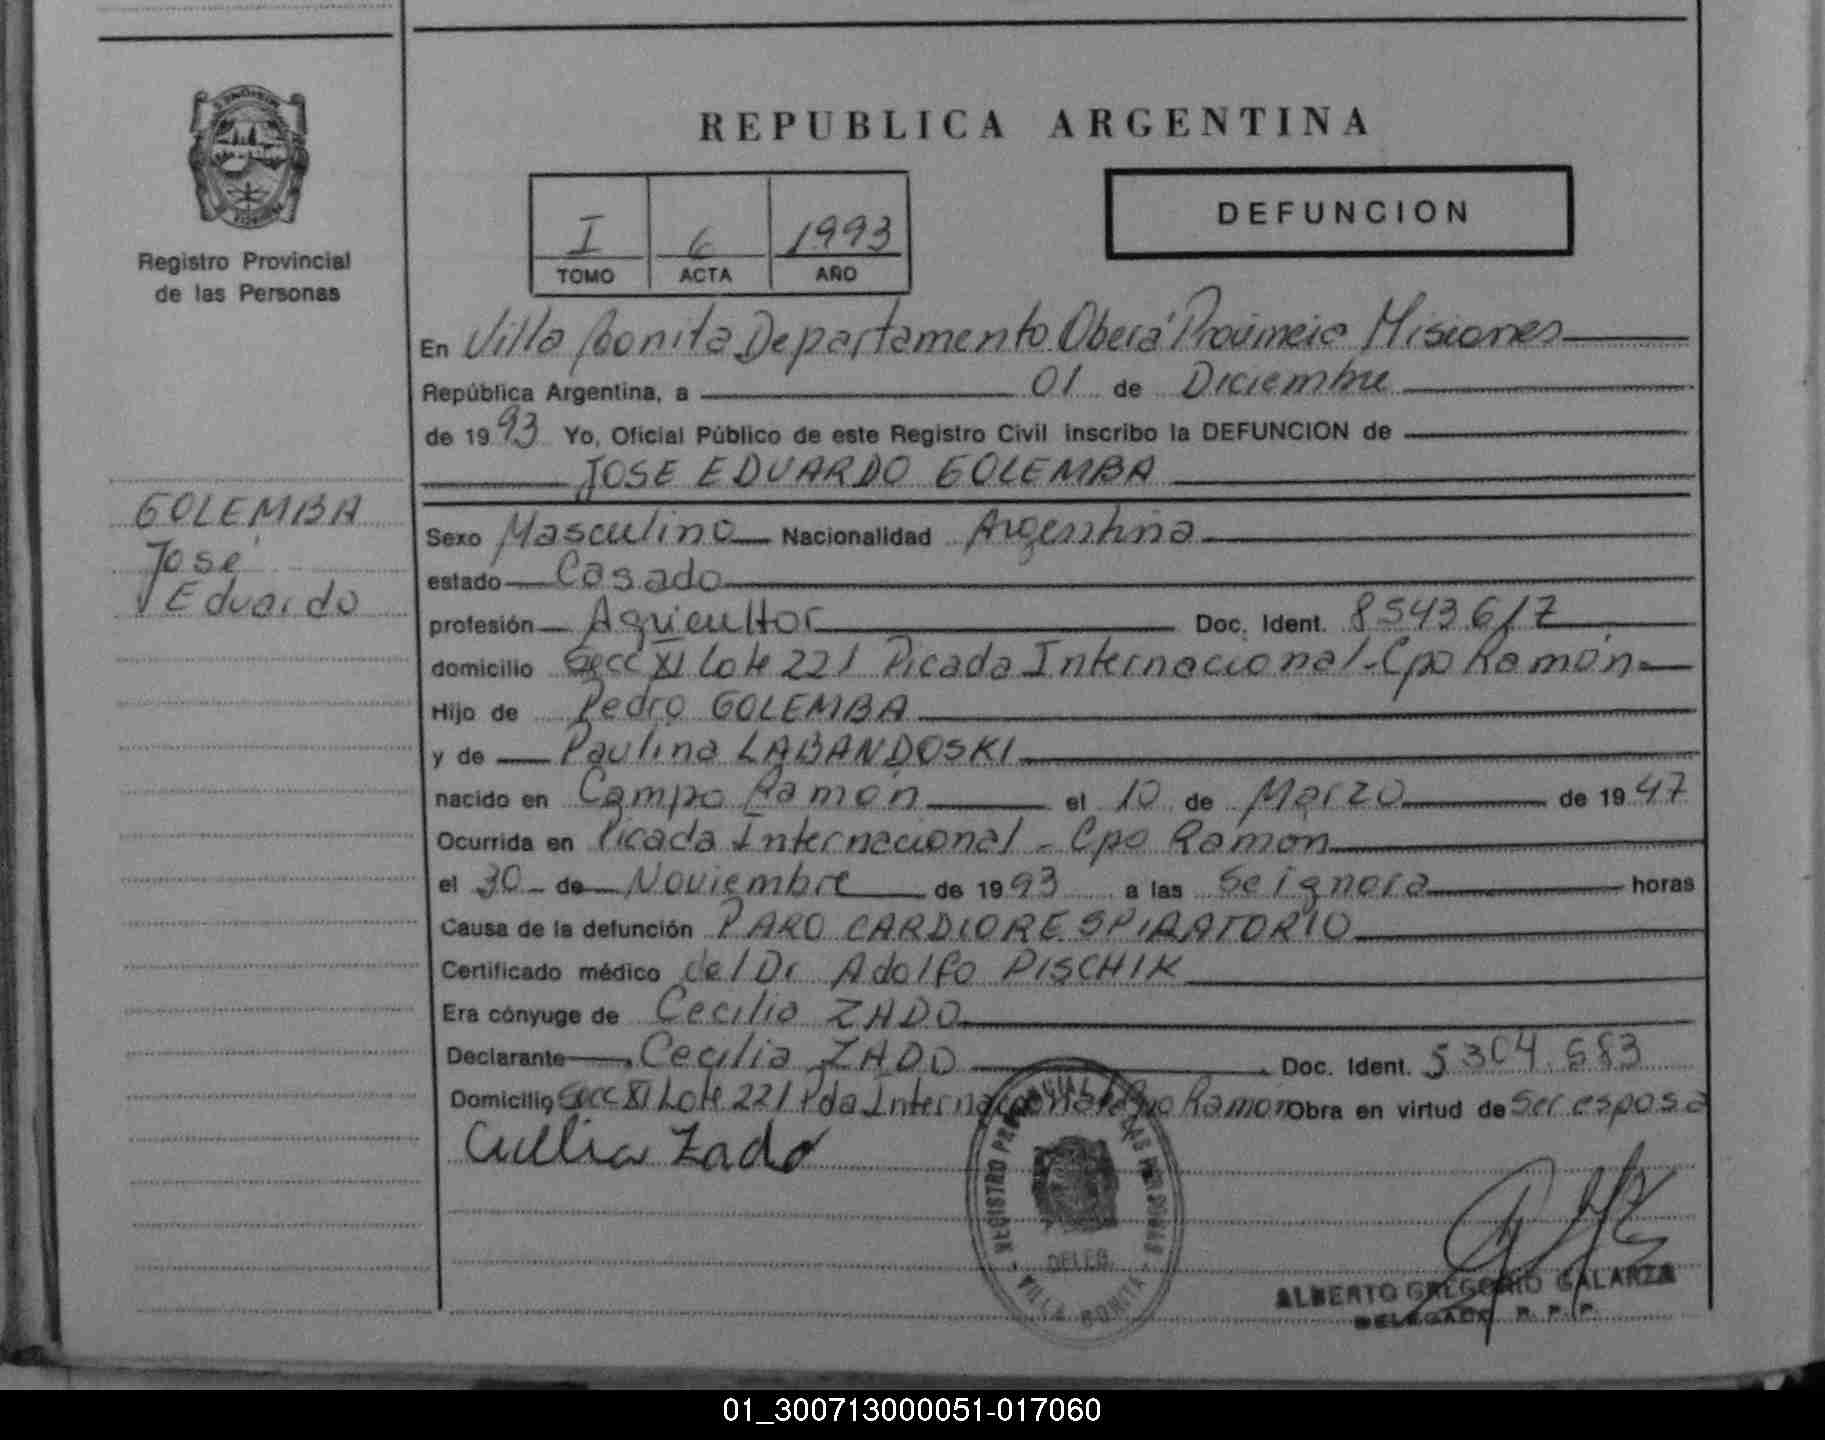 REPUBLICA ARGENTINA
Registro Provincial
de las Personas
I 6 1993
TOMO ACTA AÑO
DEFUNCION
En Villa Bonita Departamento Oberá Provincia Misiones
República Argentina, a 01 de Diciembre
de 1993 Yo, Oficial Público de este Registro Civil inscribo la DEFUNCION de
JOSE EDUARDO GOLEMBA
GOLEMBA
José
Eduardo
Sexo Masculino Nacionalidad Argentina
estado Casado
profesión Agricultor Doc. Ident. 8543617
domicilio Secc XI Lote 221 Picada Internacional-Cpo Ramón
Hijo de Pedro GOLEMBA
y de Paulina LABANDOSKI
nacido en Campo Ramón el 10 de Marzo de 1947
Ocurrida en Picada Internacional - Cpo Ramon
el 30 de Noviembre de 1993 a las Se ignora horas
Causa de la defunción PARO CARDIORESPIRATORIO
Certificado médico del Dr Adolfo PISCHIK
Era cónyuge de Cecilia ZADO
Declarante Cecilia ZADO Doc. Ident. 5304.683
Domicilio Secc XI Lote 221 Pda Internacional Cpo Ramon Obra en virtud de Ser esposa
Cecilia Zado
REGISTRO PROVINCIAL DE LAS PERSONAS
DELEG.
VILLA BONITA
ALBERTO GREGORIO GALARZA
DELEGADO R. P. P.
01_300713000051-017060